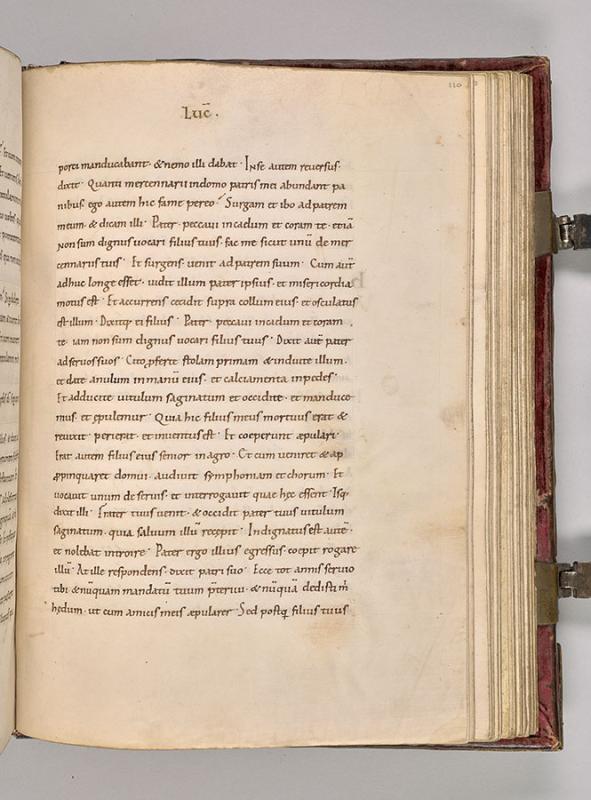 110
Luc̄ .
porci manducabant · & nemo illi dabat · In se autem reversus ·
dixit · Quanti mercennarii in domo patris mei abundant pa
nibus · ego autem hic fame pereo · Surgam et ibo ad patrem
meum · & dicam illi · Pater · peccavi in caelum et coram te · & iā
non sum dignus vocari filius tuus · fac me sicut unū de mer
cennariis tuis · Et surgens · venit ad patrem suum · Cum aut̄
adhuc longe esset · vidit illum pater ipsius · et misericordia
motus est · Et accurrens cecidit supra collum eius · et osculatus
est illum · Dixitq; ei filius · Pater · peccavi in caelum et coram
te · iam non sum dignus vocari filius tuus · Dixit aut̄ pater
ad servos suos · Cito ꝓferte stolam primam & induite illum ·
et date anulum in manū eius · et calciamenta in pedes ·
Et adducite vitulum saginatum et occidite · et manduce
mus · et ępulemur · Quia hic filius meus mortuus erat &
revixit · perierat · et inventus est · Et coeperunt æpulari ·
Erat autem filius eius senior in agro · Et cum veniret & ap
ꝓpinquaret domui · audivit symphoniam et chorum · Et
vocavit unum de servis · et interrogavit quae hęc essent · Isq;
dixit illi · Frater tuus venit · & occidit pater tuus vitulum
saginatum · quia salvum illū recepit · Indignatus est autē ·
et nolebat introire · Pater ergo illius egressus · coepit rogare
illū · At ille respondens · dixit patri suo · Ecce tot annis servio
tibi & nūquam mandatū tuum p̄terivi · & nūquā dedisti m̄
hędum · ut cum amicis meis æpularer · Sed postq̄ filius tuus